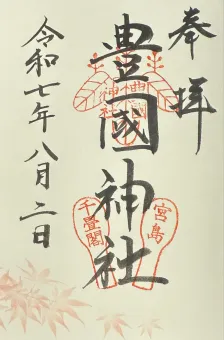 奉拝
豊國神社
令和七年八月二日
宮島
千畳閣
豊国神社